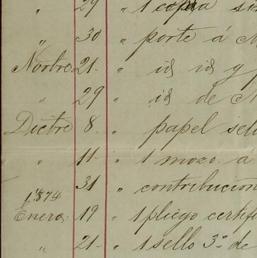 " 29 " 1 copia sim
" 30 " porte á M
Novbre 21. " id id y p
" 29 " id de M
Dicbre 8. " papel sell
" 11. " 1 mozo a
" 31 " contribucion
1874
Enero 19 " 1 pliego certifi
" 21. " 1 sello 3º de